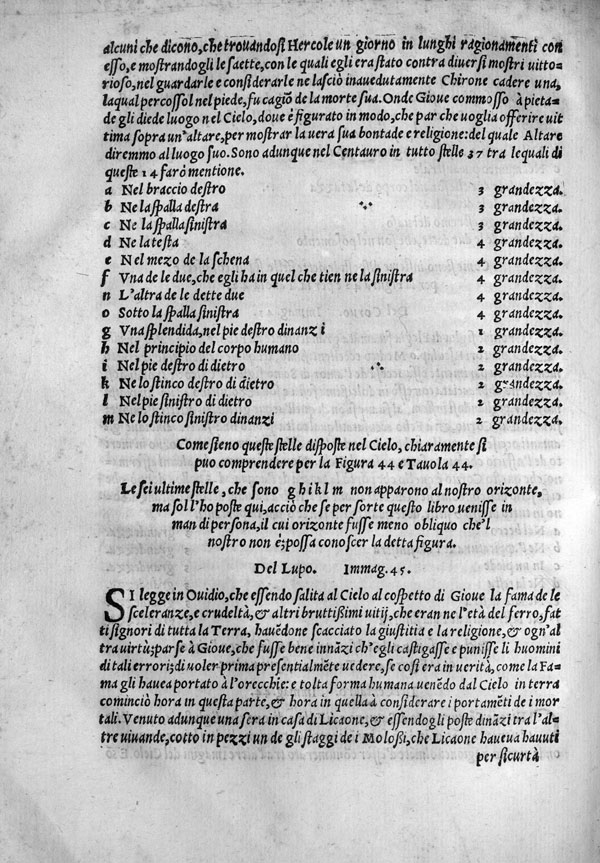 alcuni che dicono, che trouandosi Hercole un giorno in lunghi ragionamenti con
esso, e mostrandogli le saette, con le quali egli era stato contra diuersi mostri uitto-
rioso, nel guardarle e considerarle ne lasciò inauedutamente Chirone cadere una,
laqual percossol nel piede, fu cagiõ de la morte sua. Onde Gioue commosso à pieta-
de gli diede luogo nel Cielo, doue è figurato in modo, che par che uoglia offerire uit
tima sopra un'altare, per mostrar la uera sua bontade e religione: del quale Altare
diremmo al luogo suo. Sono adunque nel Centauro in tutto stelle 37 tra lequali di
queste 14 farò mentione.
a Nel braccio destro 3 grandezza.
b Ne la spalla destra 3 grandezza.
c Ne la spalla sinistra 3 grandezza.
d Ne la testa 4 grandezza.
e Nel mezo de la schena 4 grandezza.
f Vna de le due, che egli ha in quel che tien ne la sinistra 4 grandezza.
n L'altra de le dette due 4 grandezza.
o Sotto la spalla sinistra 4 grandezza.
g Vna splendida, nel pie destro dinanzi 1 grandezza.
h Nel principio del corpo humano 2 grandezza.
i Nel pie destro di dietro 2 grandezza.
k Ne lo stinco destro di dietro 2 grandezza.
l Nel pie sinistro di dietro 2 grandezza.
m Ne lo stinco sinistro dinanzi 2 grandezza.
Come sieno queste stelle disposte nel Cielo, chiaramente si
puo comprendere per la Figura 44 e Tauola 44.
Le sei ultime stelle, che sono g h i k l m non apparono al nostro orizonte,
ma sol l'ho poste qui, acciò che se per sorte questo libro uenisse in
man di persona, il cui orizonte fusse meno obliquo che'l
nostro non è; possa conoscer la detta figura.
Del Lupo. Immag. 45.
SI legge in Ouidio, che essendo salita al Cielo al cospetto di Gioue la fama de le
sceleranze, e crudeltà, & altri bruttißimi uitij, che eran ne l'età del ferro, fat
ti signori di tutta la Terra, hauẽdone scacciato la giustitia e la religione, & ogn'al
tra uirtù; parse à Gioue, che fusse bene innãzi ch'egli castigasse e punisse li huomini
di tali errori; di uoler prima presentialmẽte uedere, se cosi era in uerità, come la Fa-
ma gli hauea portato à l'orecchie: e tolta forma humana uenẽdo dal Cielo in terra
cominciò hora in questa parte, & hora in quella à considerare i portamẽti de i mor
tali. Venuto adunque una sera in casa di Licaone, & essendogli poste dinãzi tra l'al-
tre uiuande, cotto in pezzi un de gli staggi de i Moloßi, che Licaone haueua hauuti
per sicurtà